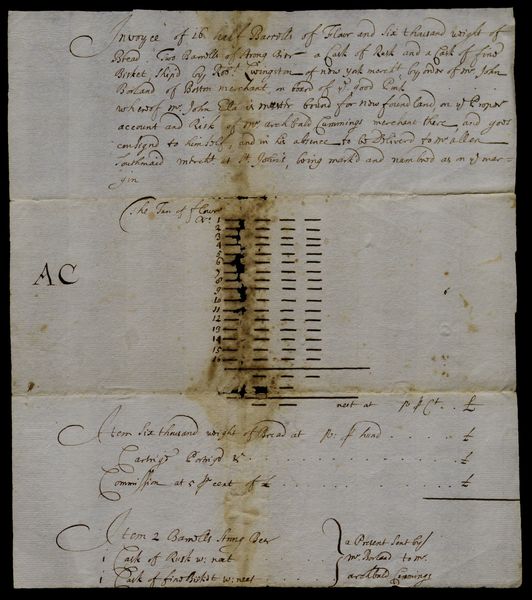 Invoyce of 16 half Barrells of Flour and Six thousand weight of
Bread. Two Barrells of Strong Beer a Cask of Rusk and a Cask of fine
Bisket, Shipd by Rot. Livingston of new york mercht by order of mr John
Borland of Boston merchant, on board of ye good Pink
whereof mr. John Ellis is mastr bound for new found land on ye Proper
account and Risk of mr archbald Cummings merchant there, and goes
consignd to himself, and in his absence to be Deliverd to mr allen
Southmaid mercht at St. John's, being markd and numbred as in ye mar-
gin
The Tan of flowr
No. 1
2
3
4
5
6
7
8
9
10
11
12
13
14
15
16
AC
neet at pr Ct. . £
Item Six thousand weight of Bread at pr hund . . . . . . £
Cartrige Portrige &c . . . . . . £
Commission at 5 pr cent of £ . . . . . . £
Item 2 Barrells Strong Beer
1 Cask of Rusk w: neet
1 Cask of fine Bisket w: neet
a Present Sent by
mr. Borland to mr.
archbald Cummings